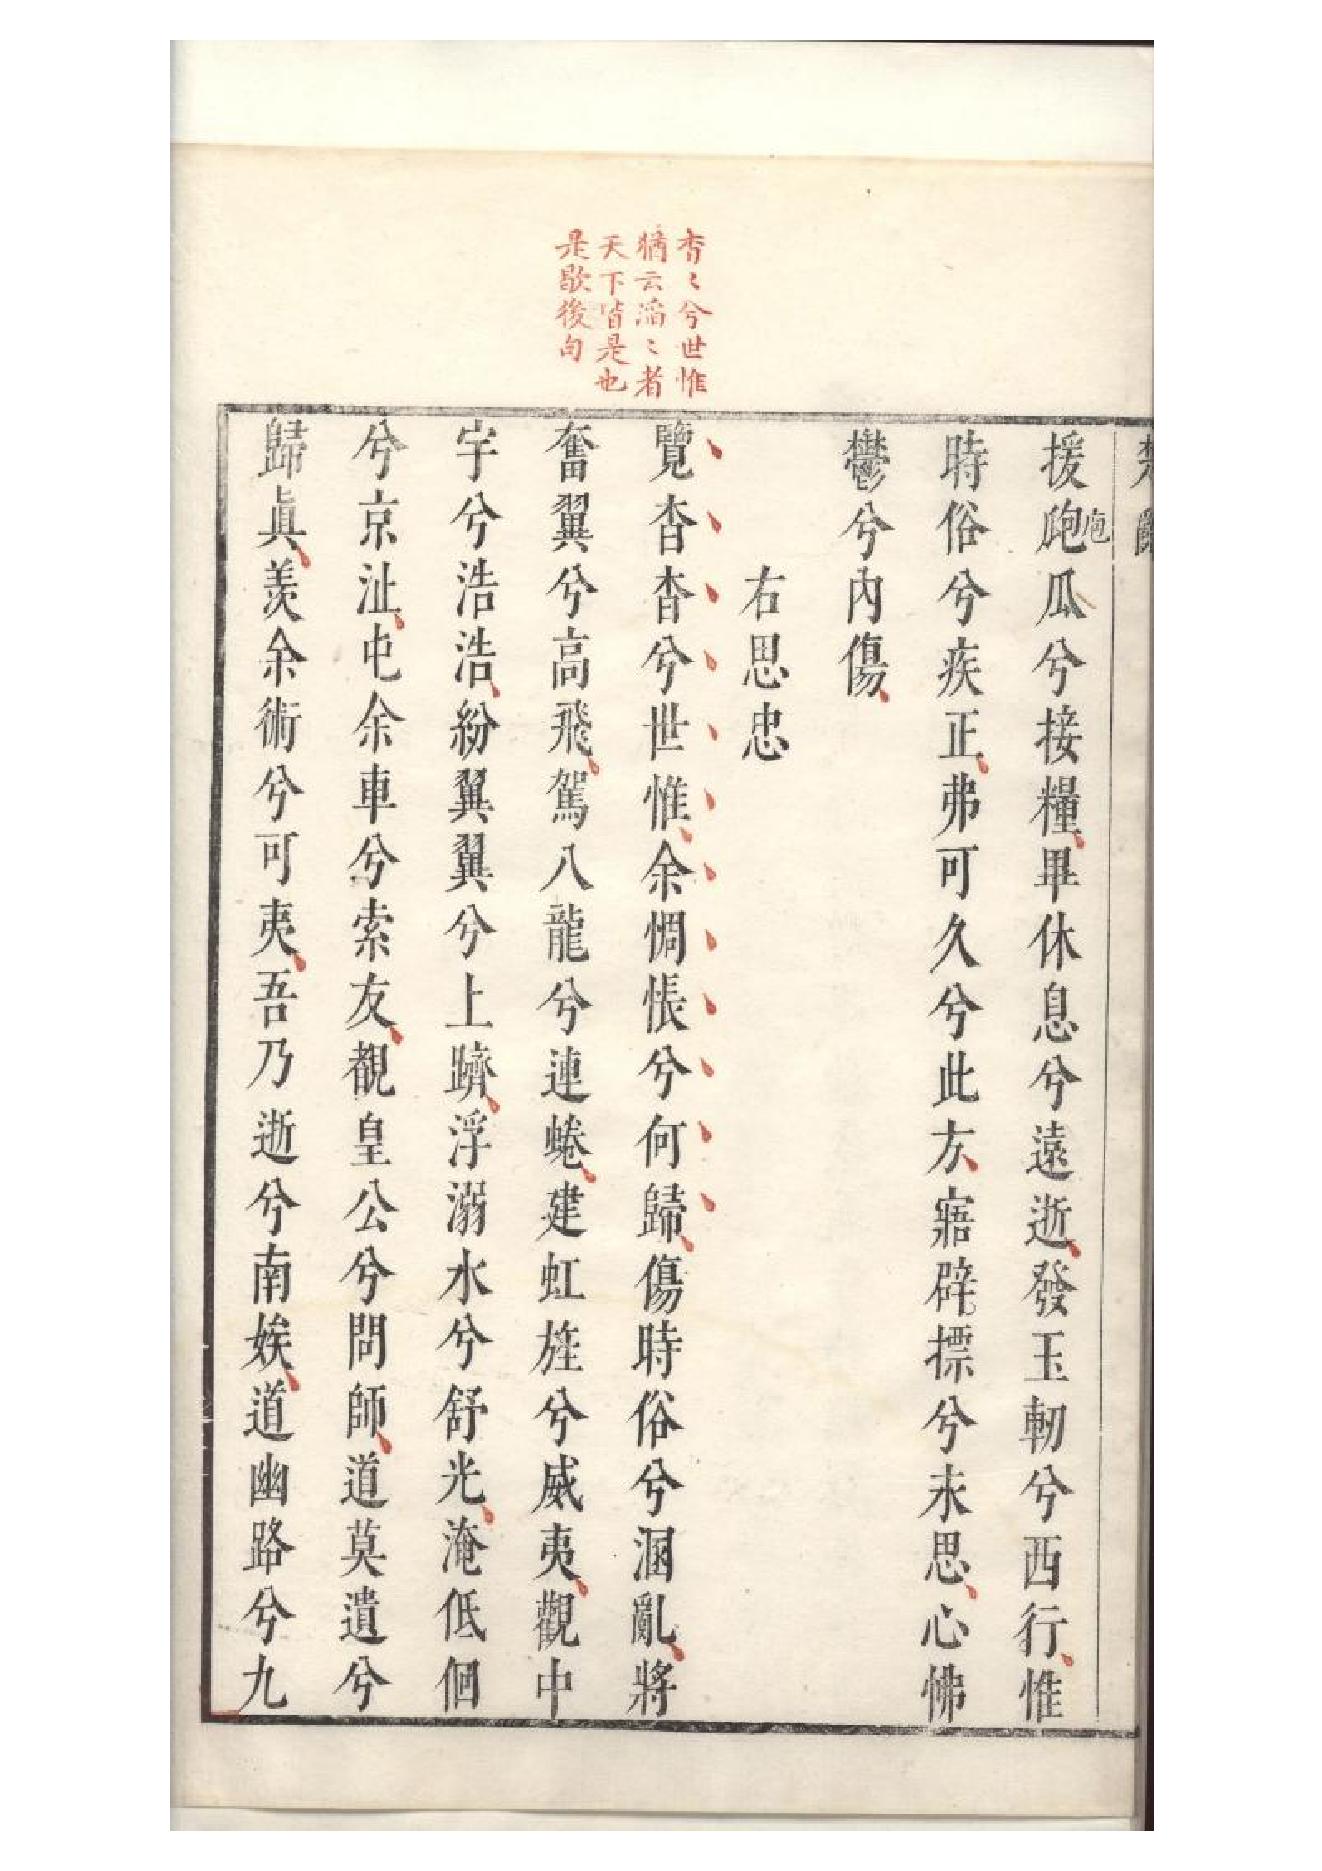 杳〻兮世惟
猶云滔〻者
天下皆是也
是歇後句
援瓟瓜兮接糧畢休息兮遠逝發玉軔兮西行惟
時俗兮疾正弗可久兮此方寤辟摽兮永思心怫
鬱兮內傷
右思忠
覽杳杳兮世惟余惆悵兮何歸傷時俗兮溷亂將
奮翼兮高飛駕八龍兮連蜷建虹旌兮威夷觀中
宇兮浩浩紛翼翼兮上躋浮溺水兮舒光淹低佪
兮京沚屯余車兮索友覩皇公兮問師道莫遺兮
歸眞羨余術兮可夷吾乃逝兮南娭道幽路兮九